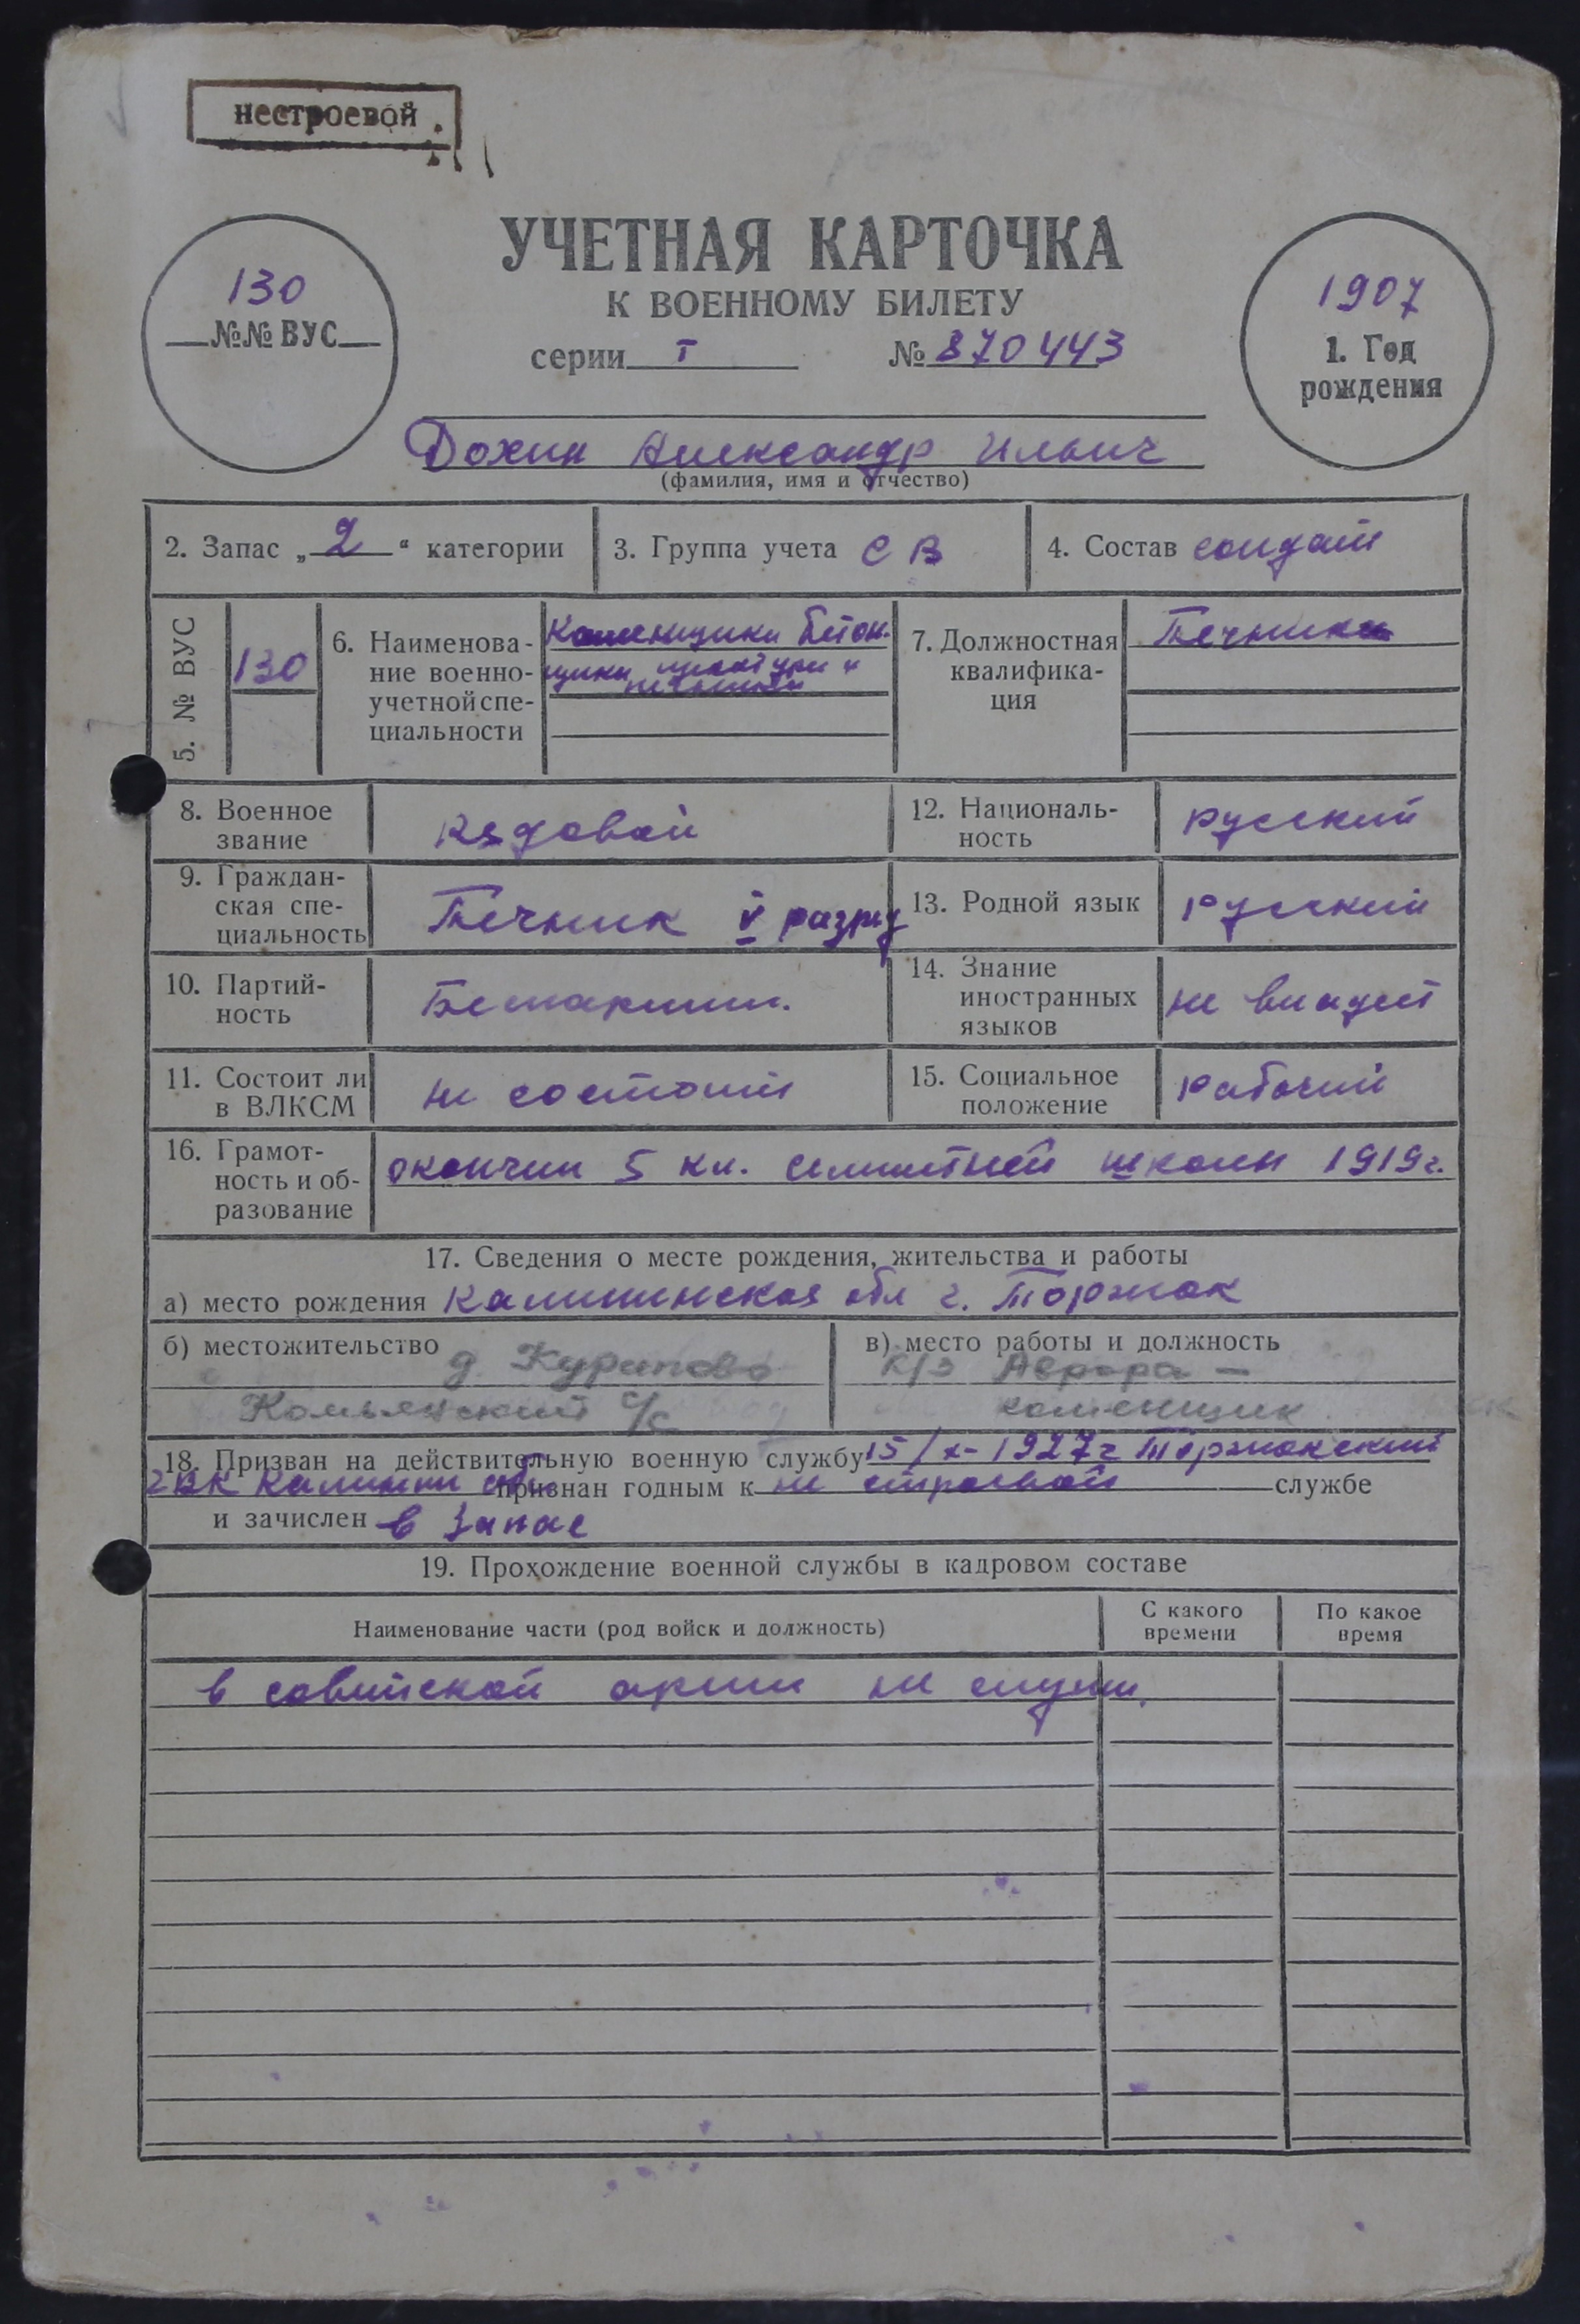 нестроевой
УЧЕТНАЯ КАРТОЧКА
К ВОЕННОМУ БИЛЕТУ
серии I № 870443
130
№№ ВУС
1907
1. Год
рождения
Дохин Александр Ильич
(фамилия, имя и отчество)
2. Запас „2“ категории
3. Группа учета СВ
4. Состав солдат
5. № ВУС
130
6. Наименова-
ние военно-
учетной спе-
циальности
Каменщики бетон-
щики, штукатуры и
печники
7. Должностная
квалифика-
ция
Печник
8. Военное
звание
Рядовой
12. Националь-
ность
русский
9. Граждан-
ская спе-
циальность
Печник V разряд
13. Родной язык
русский
10. Партий-
ность
Беспартийн.
14. Знание
иностранных
языков
не владеет
11. Состоит ли
в ВЛКСМ
не состоит
15. Социальное
положение
рабочий
16. Грамот-
ность и об-
разование
окончил 5 кл. семилетней школы 1919г.
17. Сведения о месте рождения, жительства и работы
а) место рождения Калининская обл г. Торжок
б) местожительство д.
с/с
в) место работы и должность
к/з Аврора –
каменщик
18. Призван на действительную военную службу 15/X–1927г Торжокский
ГВК Калинин обл признан годным к не строевой службе
и зачислен в запас
19. Прохождение военной службы в кадровом составе
Наименование части (род войск и должность)
С какого
времени
По какое
время
в советской армии не служил.